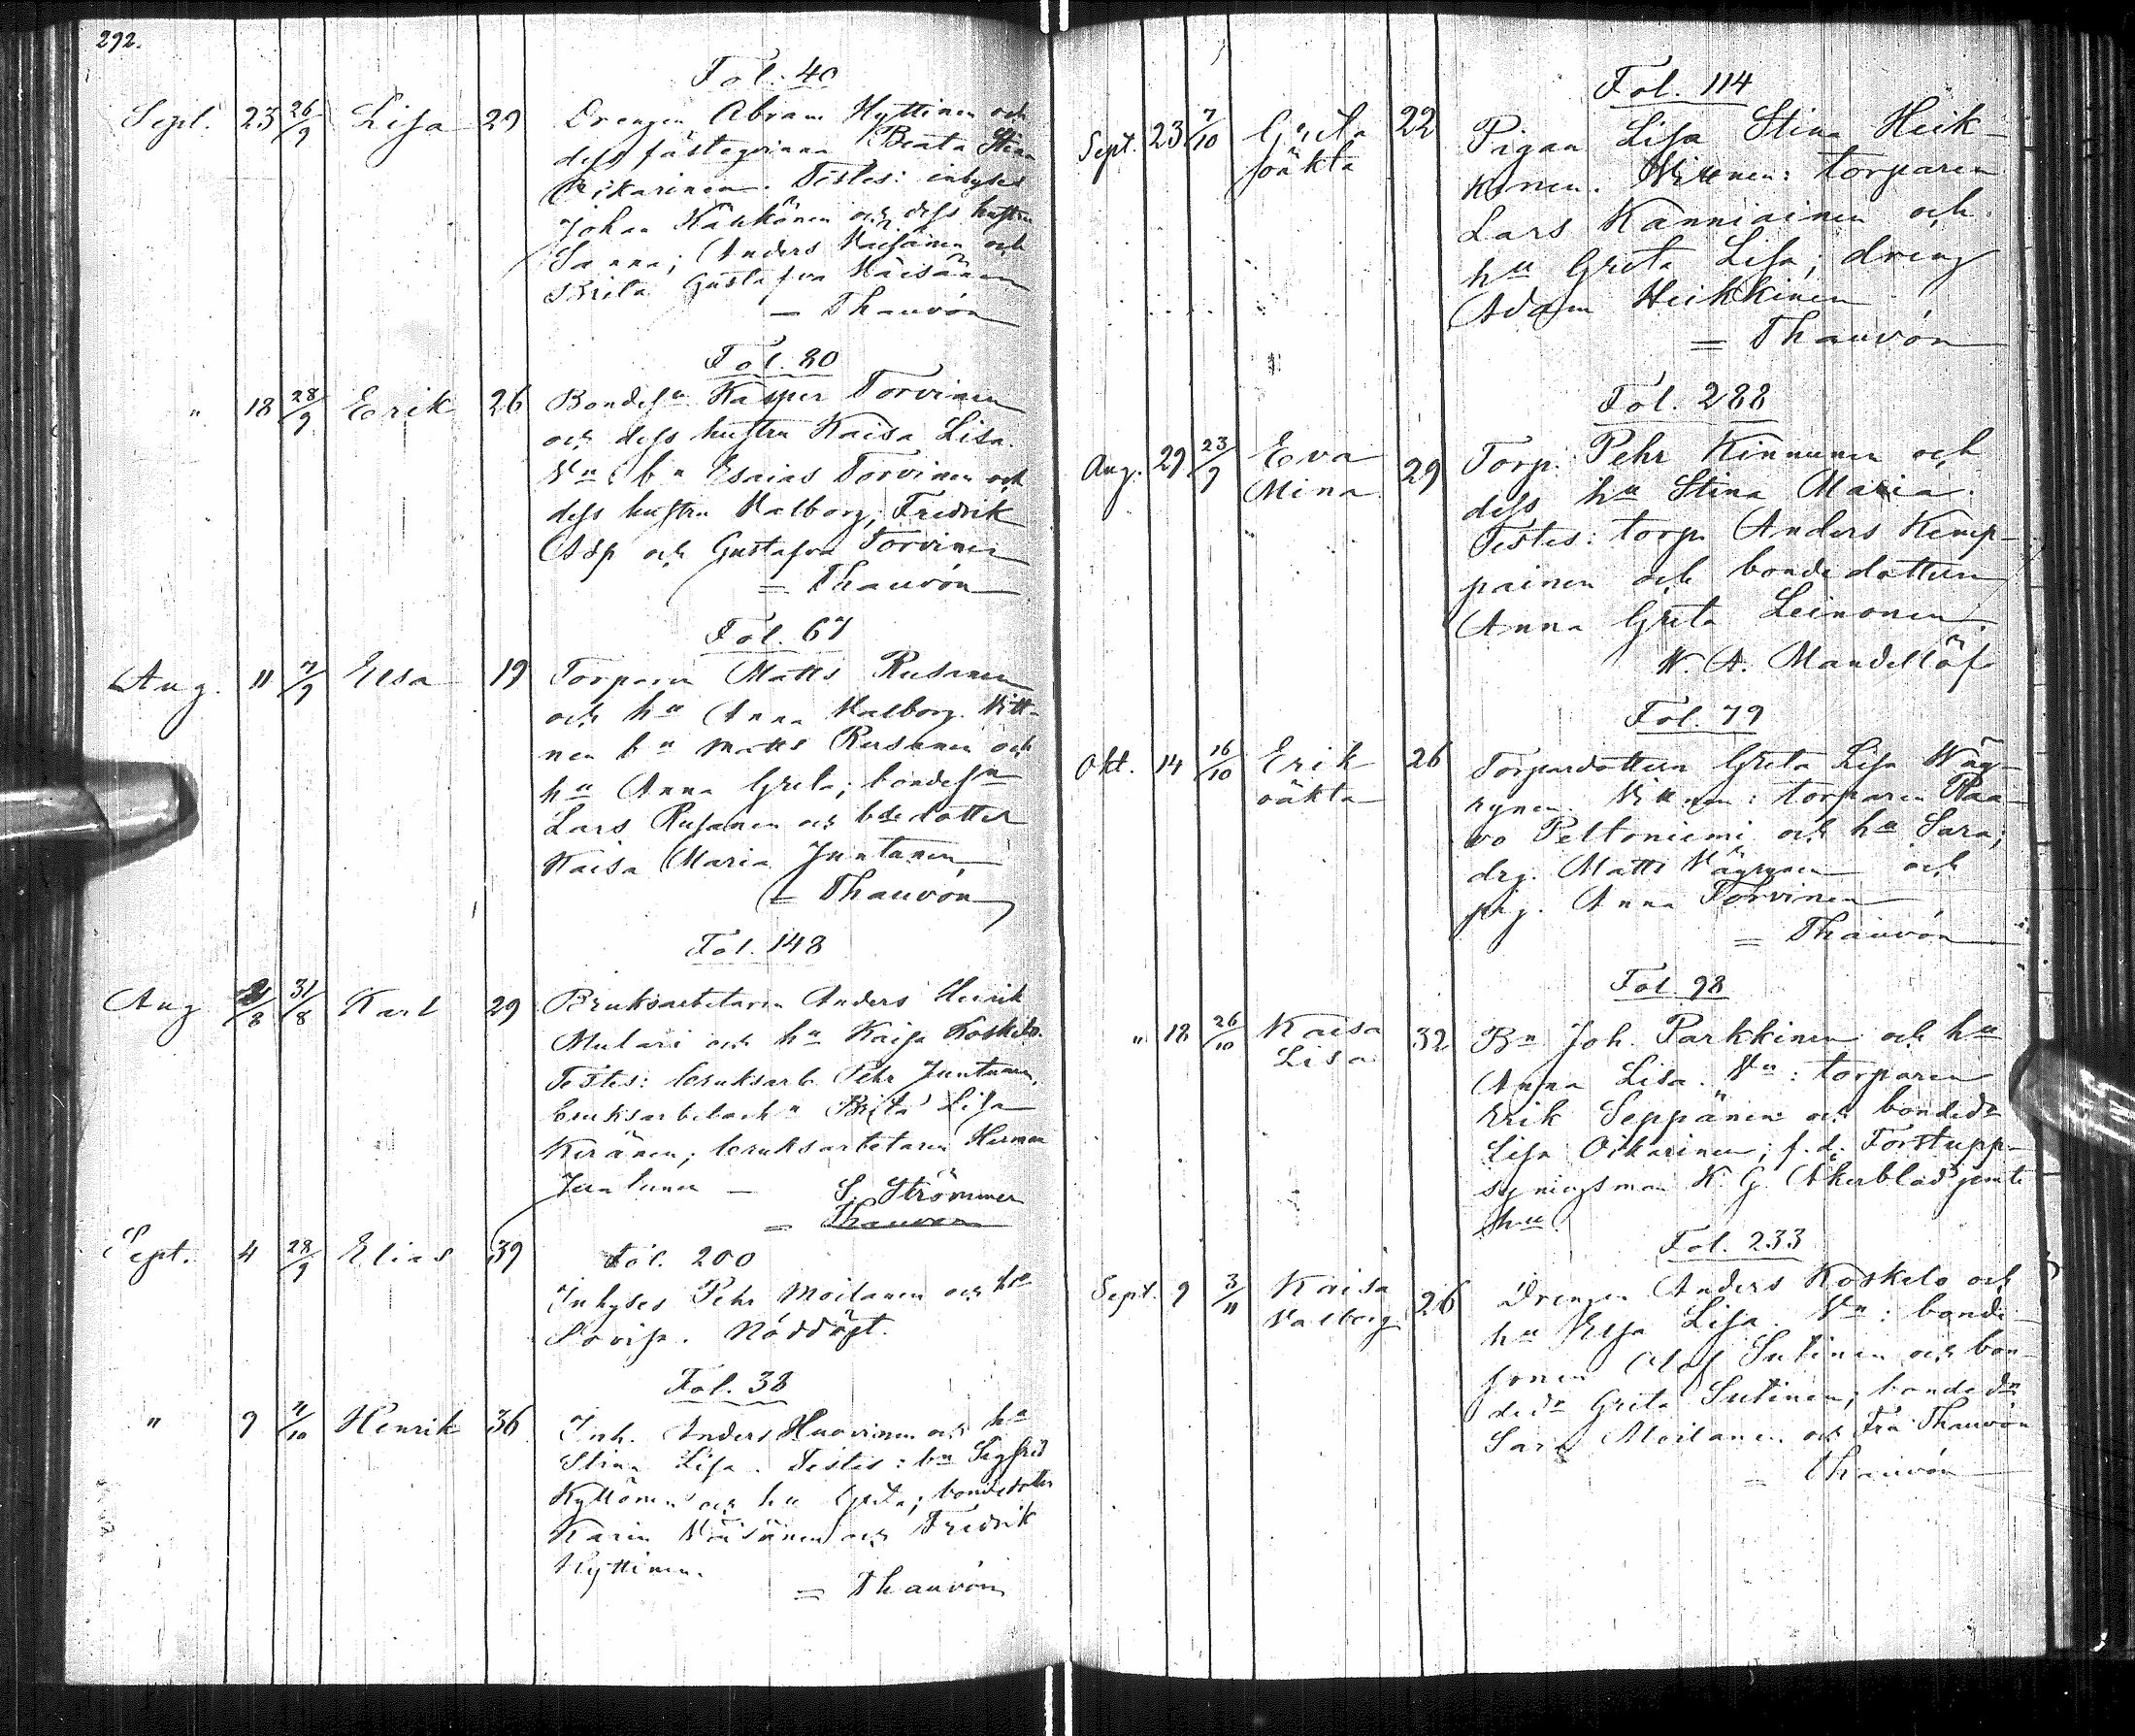 292.
Fol. 40
Sept. 23 26/9 Lisa 29 Drengen Abram Hyttinen och
dess fästeqvinna Beata Stina
Oikarinen. Testes: inhyses
Johan Kähkönen och dess hustru
Sanna; Anders Väisänen och
Brita Gustafva Väisänen
– Thauvón
Fol. 80
" 18 28/9 Erik 26 Bondesn Kasper Torvinen
och dess hustru Kaisa Lisa.
Vn: bn Esaias Torvinen och
dess hustru Valborg, Fredrik
Adf och Gustafva Torvinen
= Thauvón
Fol. 67
Aug. 11 7/9 Elsa 19 Torparen Matts Rusanen
och hu Anna Valborg. Vitt-
nen bn Matts Rusanen och
hu Anna Greta; bondesn
Lars Rusanen och bdedotter
Kaisa Maria Juntanen
– Thauvón
Fol. 148
Aug 31/8 Karl 29 Bruksarbetaren Anders Henrik
Mulari och hu Kaisa Koskelo.
Testes: bruksarb. Pehr Juntunen,
bruksarbetareh. Brita Lisa
Keränen; bruksarbetaren Herman
Juntunen – S. Strömmer
= Thauvón
Sept. 4 28/9 Elias 39 Fol. 200
Inhyses Pehr Moilanen och hu
Lovisa. Nöddöpt.
Fol. 38
" 9 /10 Henrik 36 Inh. Anders Huovinen och hu
Stina Lisa. Testes: bn Sigfrid
Kyllönen och hu Greta; bondedotter
Karin Väisänen och Fredrik
Hyttinen.
= Thauvón
Fol. 114
Sept. 23 7/10 Greta 22 Pigan Lisa Stina Heik-
oäkta kinen. Vittnen: torparen
Lars Kanniainen och
hu Greta Lisa; dreng
Adam Heikkinen
= Thauvón
Fol. 288
Aug. 29 23/9 Eva 29 Torp. Pehr Kinnunen och
Mina dess hu Stina Maria.
Testes: torp. Anders Kemp-
painen och bondedottern
Anna Greta Leinonen.
K. A. Mandellöf
Fol. 79
Okt. 14 16/10 Erik 26 Torpardottern Greta Lisa Väy-
oäkta rynen. Vittnen: torparen Paa-
vo Peltoniemi och hu Sara;
drg. Matts Väyrynen och
pig. Anna Torvinen
= Thauvón
Fol. 98
" 18 26/10 Kaisa 32 Bn Joh. Parkkinen och hu
Lisa Anna Lisa. Vn: torparen
Erik Seppänen och bondedr
Lisa Oikarinen; f. d. Forstupp-
syningsman K. G. Åkerblad jemte
hu.
Fol. 233
Sept. 9 3/11 Kaisa 26 Drengen Anders Koskelo och
Valborg hu Elsa Lisa. Vn: bonde-
sonen Olof Sutinen och bon-
dedr Greta Sutinen; bondedr
Sara Moilanen och Fru Thauvón
= Thauvón